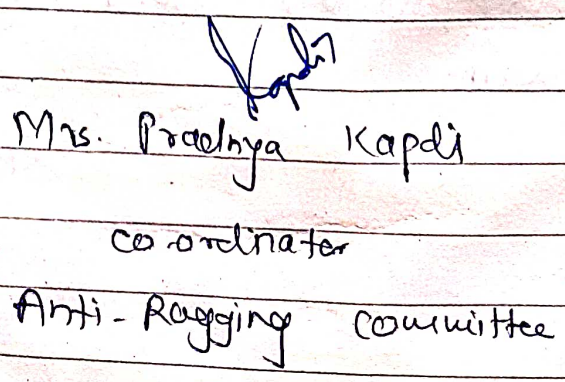 Kapdi
Mrs. Pradnya Kapdi
co-ordinater
Anti-Ragging committee